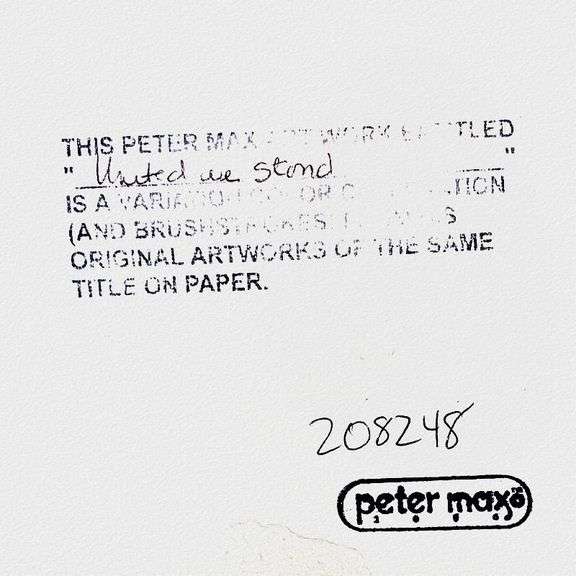 THIS PETER MAX ARTWORK ENTITLED
" United we Stand "
IS A VARIATION COLOR
(AND BRUSHSTROKES)
ORIGINAL ARTWORKS OF THE SAME
TITLE ON PAPER.
208248
peter max